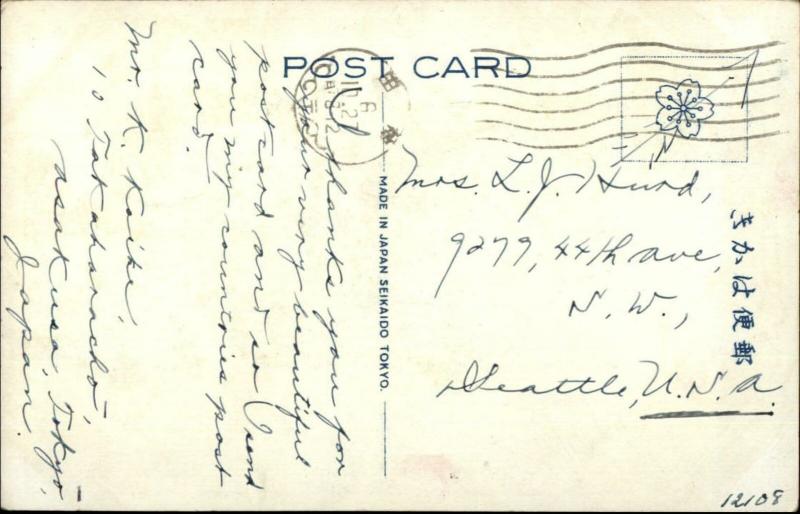 POST CARD
I thanks you for
your very beautiful
postcard and so I send
you my countries post
card.
Mr. K. Koike,
10 Takaharachō,
Asakusa, Tokyo,
Japan.
MADE IN JAPAN SEIKAIDO TOKYO.
Mrs. L. J. Hurd,
9279, 44th ave,
N. W.,
Seattle, U.S.A.
きかは便郵
12108